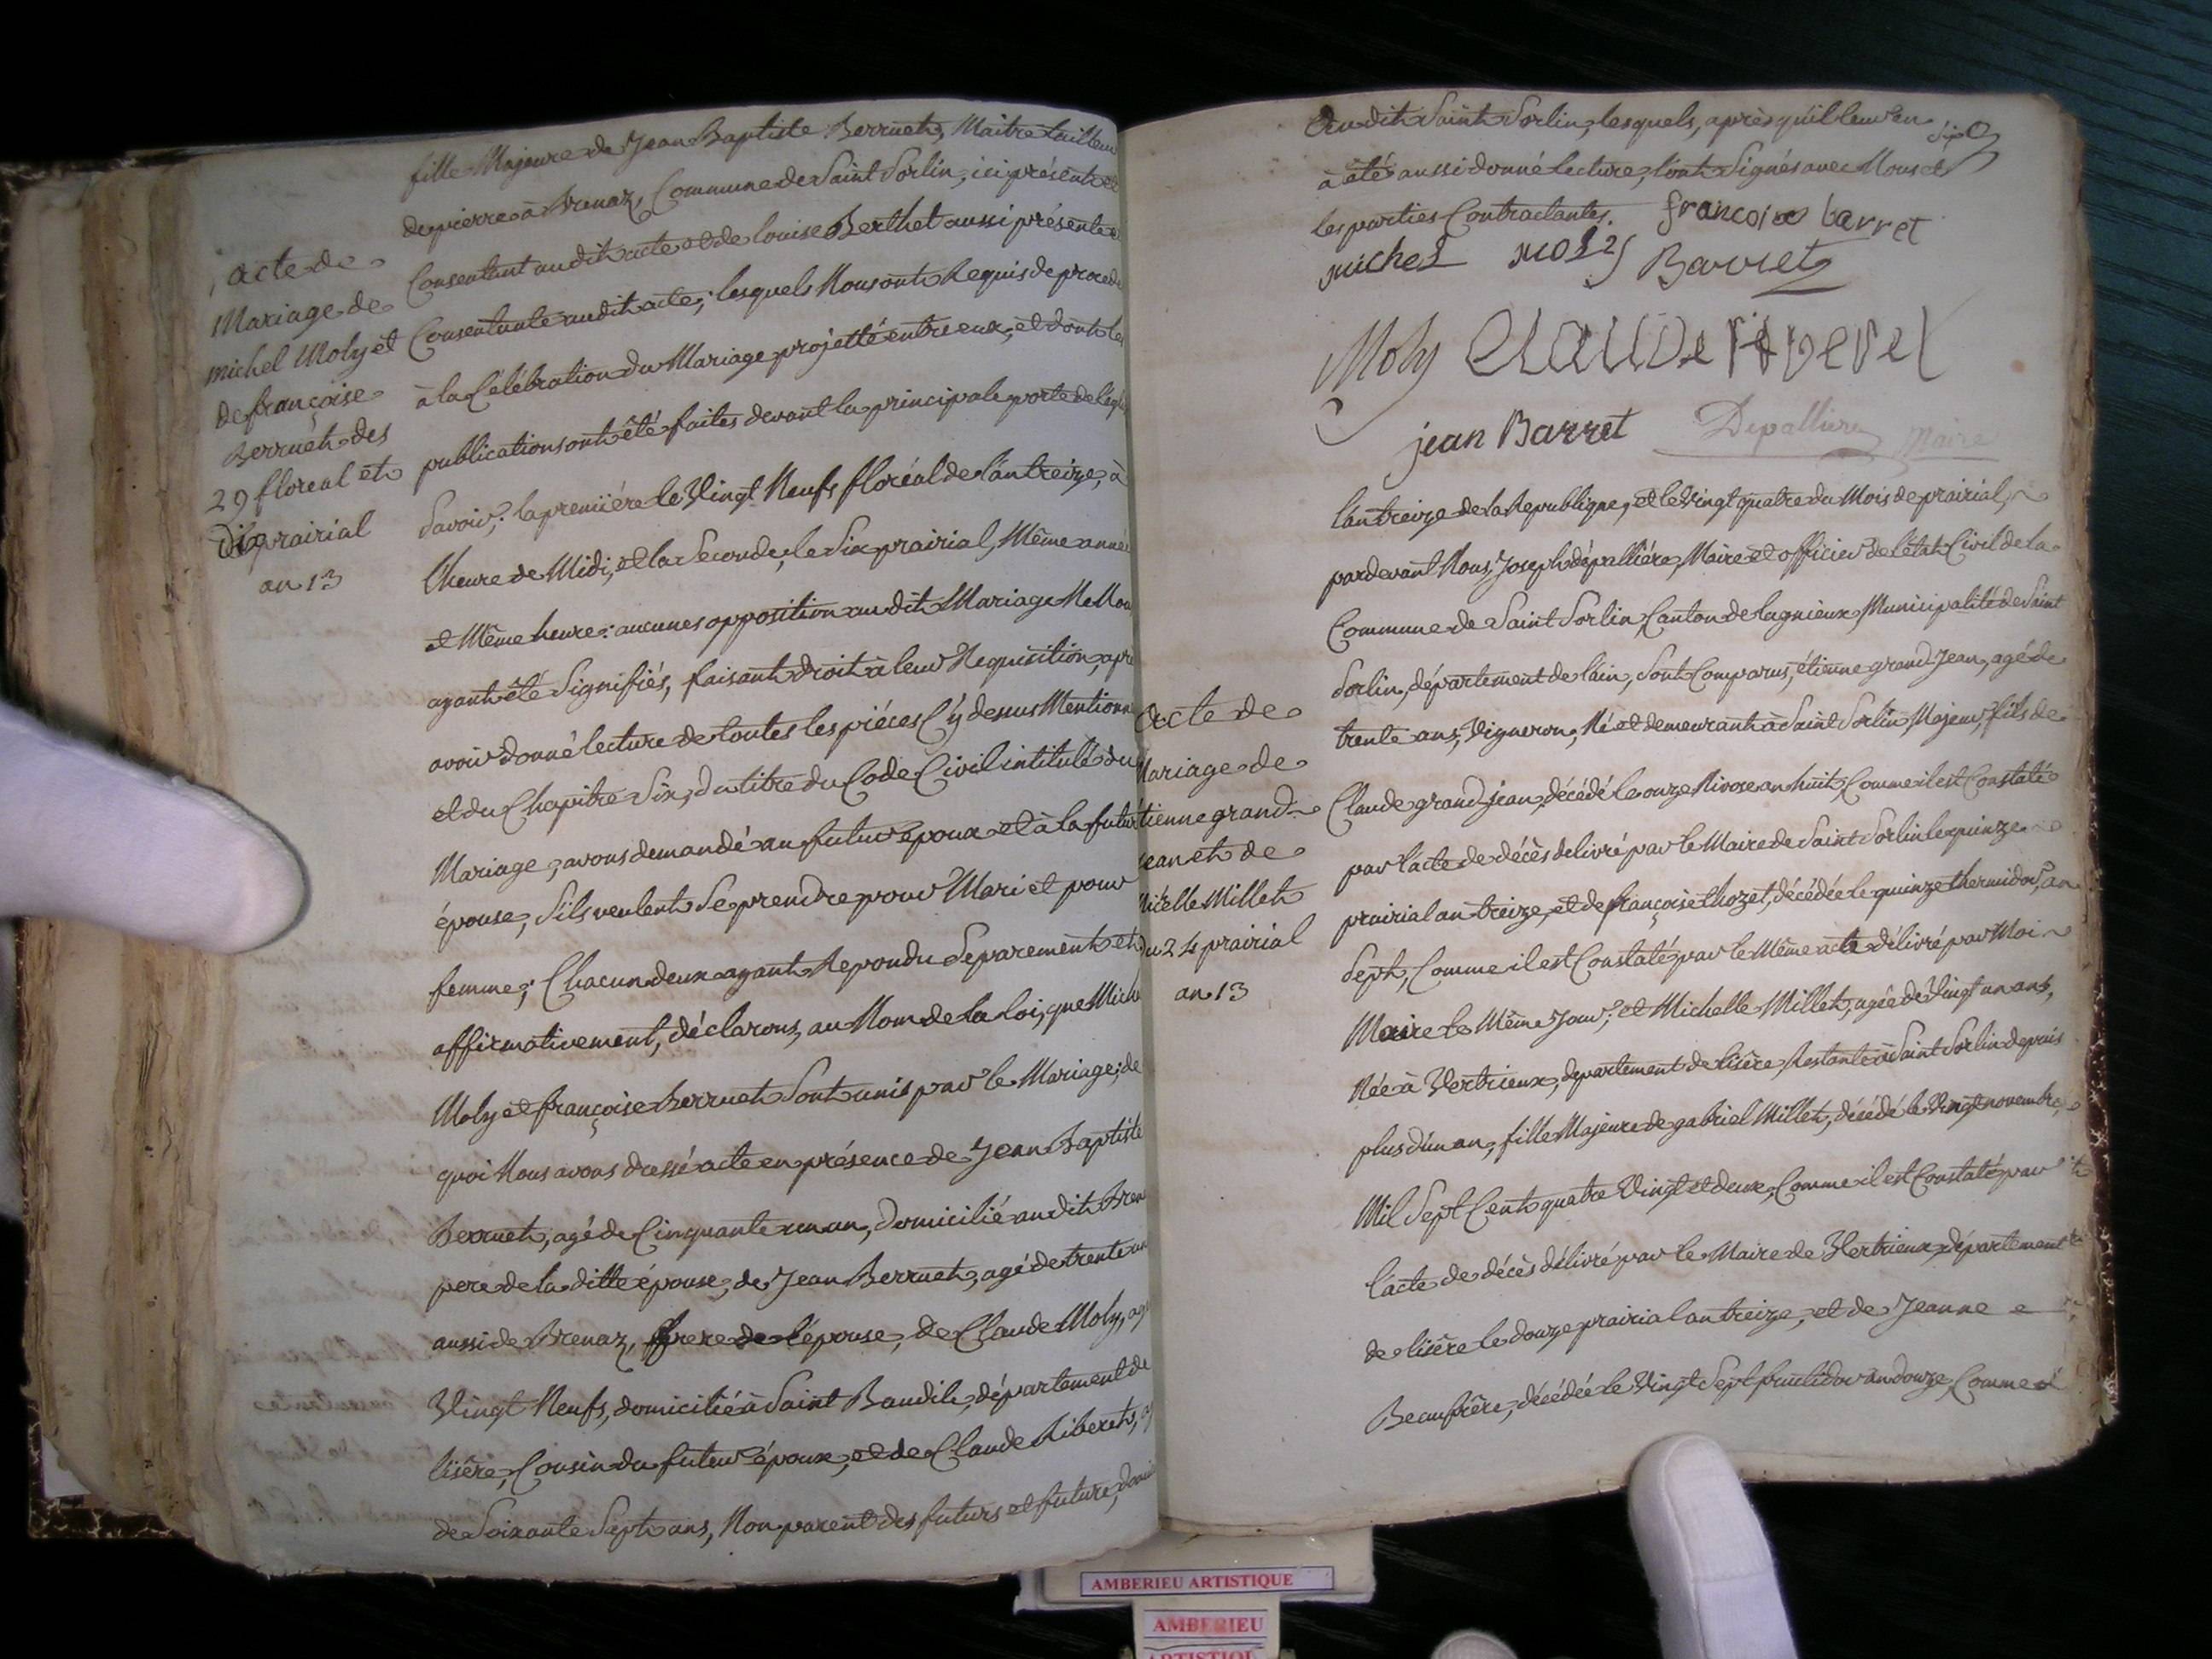 fille Majeure de Jean Baptiste Berruet, Maître tailleu
de pierre à Brenaz, Commune de Saint Sorlin, ici présent et
Consentant au dit acte et de louise Berthet aussi présente et
Consentante au dit acte; lesquels Nous ont Requis de procede
à la Célébration du Mariage projetté entre eux, et dont les
publications ont été faites devant la principale porte de l'égli
Savoir; la premiére le Vingt Neufs floréal de l'an treize, à
l'heure de Midi, et la Seconde, le Six prairial, Même année
et Même heure: aucunes opposition au dit Mariage Ne Nou
ayant été Signifiés, faisant droit à leur Requisition, apre
avoir donné lecture de toutes les piéces Cy dessus Mentionn
et du Chapitre Six, du titre du Code Civil intitulé du
Mariage, avons demandé au futur époux et à la futur
épouse, S'ils veulent Se prendre pour Mari et pour
femme; Chacun deux ayant Repondu Separement et
affirmativement, déclarons, au Nom de la Loi, que Mich
Moly et françoise Berruet Sont unis par le Mariage; de
quoi Nous avons dressé acte en présence de Jean Baptiste
Berruet, agé de Cinquante un an, domicilié au dit Bren
pere de la ditte épouse, de Jean Berruet, agé de trente an
aussi de Brenaz, frere de l'épouse, de Claude Moly, ag
Vingt Neufs, domicilié à Saint Baudile, département de
lisère, Cousin du futur époux, et de Claude Riberet, a
de Soixante Sept ans, Non parent des futurs et future, domi
acte de
Mariage de
michel Moly et
de françoise
Berruet des
29 floreal et
prairial
an 13
Au dit Saint Sorlin, lesquels, après qu'il leur en
à été aussi donné lecture, l'ont Signés avec Nous et
les parties Contractantes. francoise barret
michel moly Barret
Moly Claude riperel
jean Barret Depalliere Maire
l'an treize de la Republique, et le Vingt quatre du Mois de prairial,
pardevant Nous, Joseph dépalliére, Maire et officier de l'état Civil de la
Commune de Saint Sorlin, Canton de lagnieux, Municipalité de Saint
Sorlin, département de lain, Sont Comparus, étienne grand Jean, agé de
trente ans, Vigneron, Né et demeurant à Saint Sorlin, Majeur, fils de
Claude grand jean, décédé le onze Nivose an huit, Comme il est Constaté
par l'acte de décès delivré par le Maire de Saint Sorlin le quinze
prairial an treize, et de françoise thozet, décédée le quinze thermidor, an
Sept, Comme il est Constaté par le Même acte délivré par Moi
Maire le Même Jour; et Michelle Millet, agée de Vingt un ans,
Née à Vertrieux, departement de lisère, Restante à Saint Sorlin depuis
plus d'un an, fille Majeure de gabriel Millet, décédé le Vingt novembre,
Mil Sept Cent quatre Vingt et deux, Comme il est Constaté par
l'acte de décès délivré par le Maire de Vertrieux, département
de lisère le douze prairial an treize, et de Jeanne
Beaufrêre, décédée le Vingt Sept fructidor an douze, Comme
Acte de
Mariage de
tienne grand
Jean et de
Michelle Millet
du 24 prairial
an 13
AMBERIEU ARTISTIQUE
AMBERIEU
ARTISTIQUE